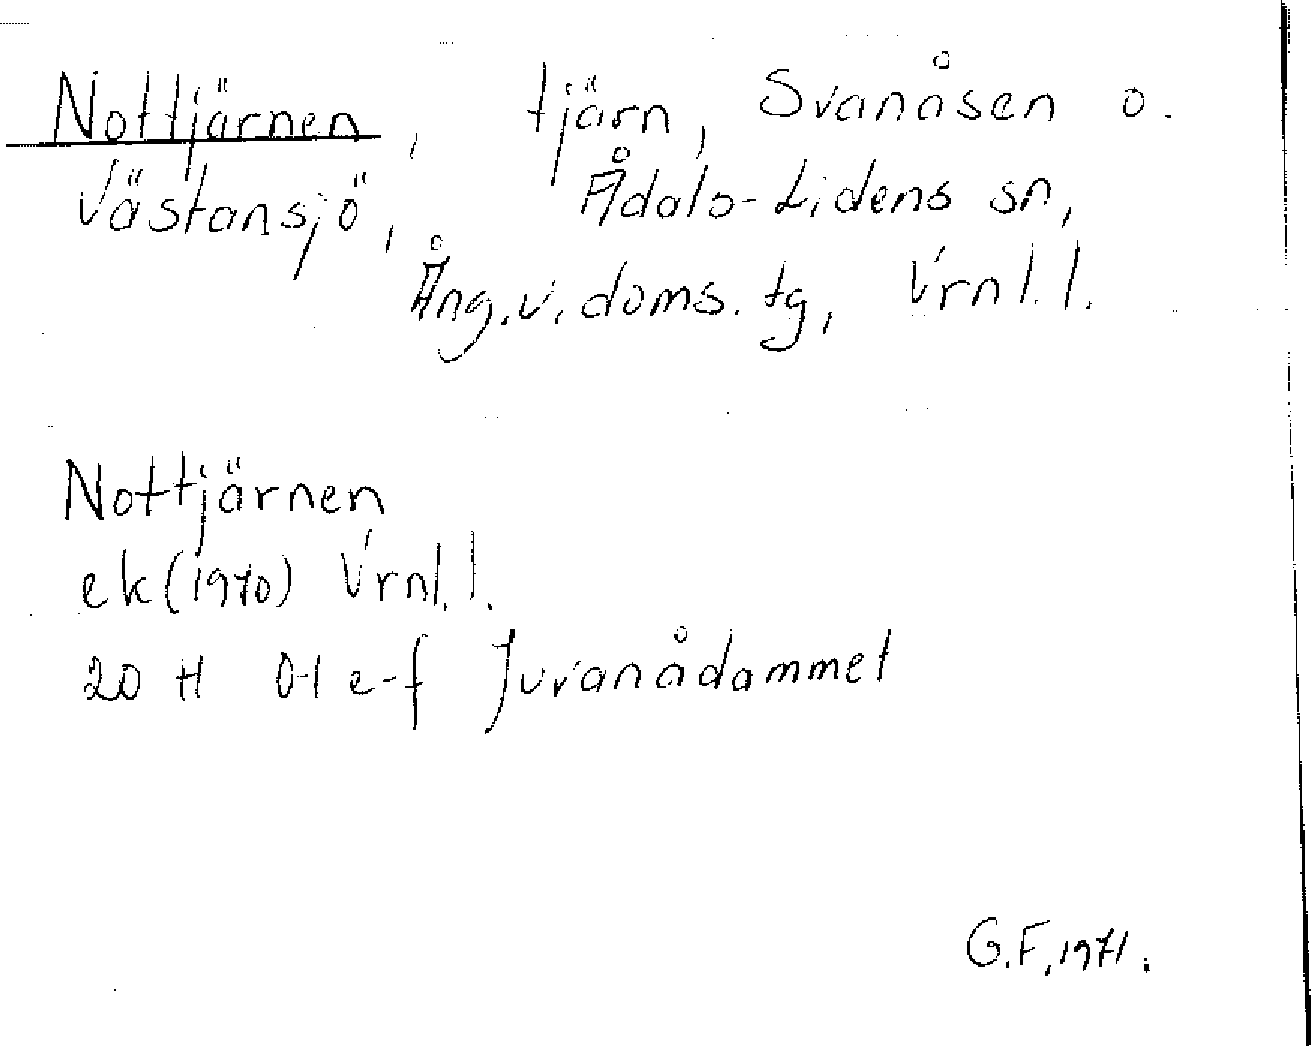 Nottjärnen, tjärn, Svanåsen o.
Västansjö, Ådals-Lidens sn,
Ång.v.doms.tg, Vrnl.l.
Nottjärnen
ek(1970) Vrnl.l.
20 H 0-1 e-f Juvanådammet
G.F.,1971.